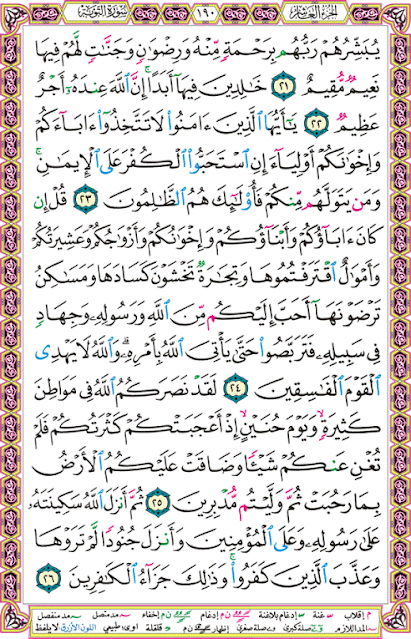 الجزء العاشر ١٩٠ سورة التوبة
يُبَشِّرُهُمْ رَبُّهُم بِرَحْمَةٍ مِّنْهُ وَرِضْوَٰنٍ وَجَنَّٰتٍ لَّهُمْ فِيهَا
نَعِيمٌ مُّقِيمٌ ٢١ خَٰلِدِينَ فِيهَآ أَبَدًا ۚ إِنَّ ٱللَّهَ عِندَهُۥٓ أَجْرٌ
عَظِيمٌ ٢٢ يَٰٓأَيُّهَا ٱلَّذِينَ ءَامَنُوا۟ لَا تَتَّخِذُوٓا۟ ءَابَآءَكُمْ
وَإِخْوَٰنَكُمْ أَوْلِيَآءَ إِنِ ٱسْتَحَبُّوا۟ ٱلْكُفْرَ عَلَى ٱلْإِيمَٰنِ ۚ
وَمَن يَتَوَلَّهُم مِّنكُمْ فَأُو۟لَٰٓئِكَ هُمُ ٱلظَّٰلِمُونَ ٢٣ قُلْ إِن
كَانَ ءَابَآؤُكُمْ وَأَبْنَآؤُكُمْ وَإِخْوَٰنُكُمْ وَأَزْوَٰجُكُمْ وَعَشِيرَتُكُمْ
وَأَمْوَٰلٌ ٱقْتَرَفْتُمُوهَا وَتِجَٰرَةٌ تَخْشَوْنَ كَسَادَهَا وَمَسَٰكِنُ
تَرْضَوْنَهَآ أَحَبَّ إِلَيْكُم مِّنَ ٱللَّهِ وَرَسُولِهِۦ وَجِهَادٍ
فِى سَبِيلِهِۦ فَتَرَبَّصُوا۟ حَتَّىٰ يَأْتِىَ ٱللَّهُ بِأَمْرِهِۦ ۗ وَٱللَّهُ لَا يَهْدِى
ٱلْقَوْمَ ٱلْفَٰسِقِينَ ٢٤ لَقَدْ نَصَرَكُمُ ٱللَّهُ فِى مَوَاطِنَ
كَثِيرَةٍ ۙ وَيَوْمَ حُنَيْنٍ ۙ إِذْ أَعْجَبَتْكُمْ كَثْرَتُكُمْ فَلَمْ
تُغْنِ عَنكُمْ شَيْـًٔا وَضَاقَتْ عَلَيْكُمُ ٱلْأَرْضُ
بِمَا رَحُبَتْ ثُمَّ وَلَّيْتُم مُّدْبِرِينَ ٢٥ ثُمَّ أَنزَلَ ٱللَّهُ سَكِينَتَهُۥ
عَلَىٰ رَسُولِهِۦ وَعَلَى ٱلْمُؤْمِنِينَ وَأَنزَلَ جُنُودًا لَّمْ تَرَوْهَا
وَعَذَّبَ ٱلَّذِينَ كَفَرُوا۟ ۚ وَذَٰلِكَ جَزَآءُ ٱلْكَٰفِرِينَ ٢٦
م إقلاب غنة إدغام بلا غنة ن م إدغام ن م إخفاء مد متصل مد منفصل
المد اللازم صلة كبرى صلة صغرى ن م قلقلة اللون الأزرق لا يلفظ